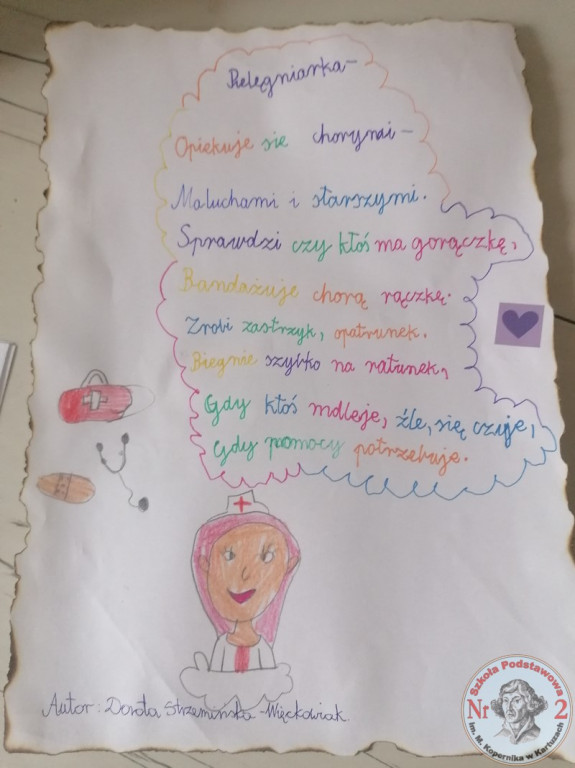 Pielęgniarka -
Opiekuje sie chorymi -
Maluchami i starszymi.
Sprawdzi czy ktoś ma gorączkę,
Bandażuje chorą rączkę.
Zrobi zastrzyk, opatrunek.
Biegnie szybko na ratunek,
Gdy ktoś mdleje, źle, się czuje,
Gdy pomocy potrzebuje.
Autor: Dorota Strzemińska-Więckowiak
Szkoła Podstawowa
Nr 2
im. M. Kopernika w Kartuzach